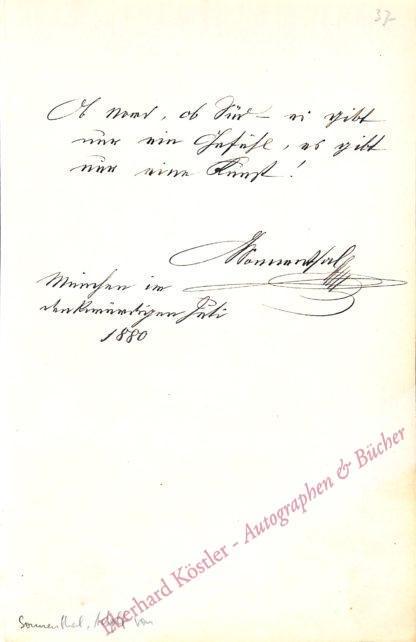 37
Ob Nord, ob Süd – es gibt
nur ein Gefühl, es gibt
nur eine Kunst!
Sonnenthal
München im
denkwürdigen Juli
1880
Eberhard Köstler - Autographen & Bücher
Sonnenthal, Adolf von